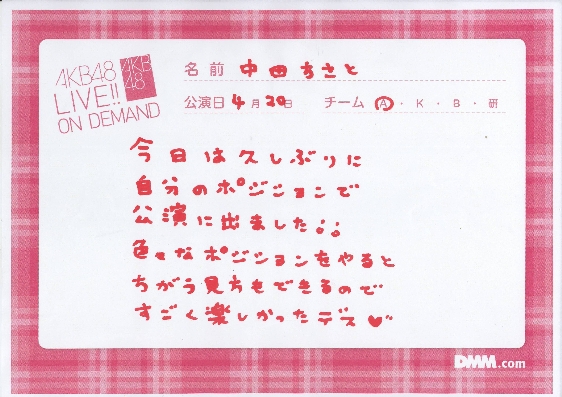 AKB48
LIVE!!
ON DEMAND
AKB
48
名前 中田ちさと
公演日 4月20日 チーム A・K・B・研
今日は久しぶりに
自分のポジションで
公演に出ました
色々なポジションをやると
ちがう見方もできるので
すごく楽しかったデス♥
DMM.com